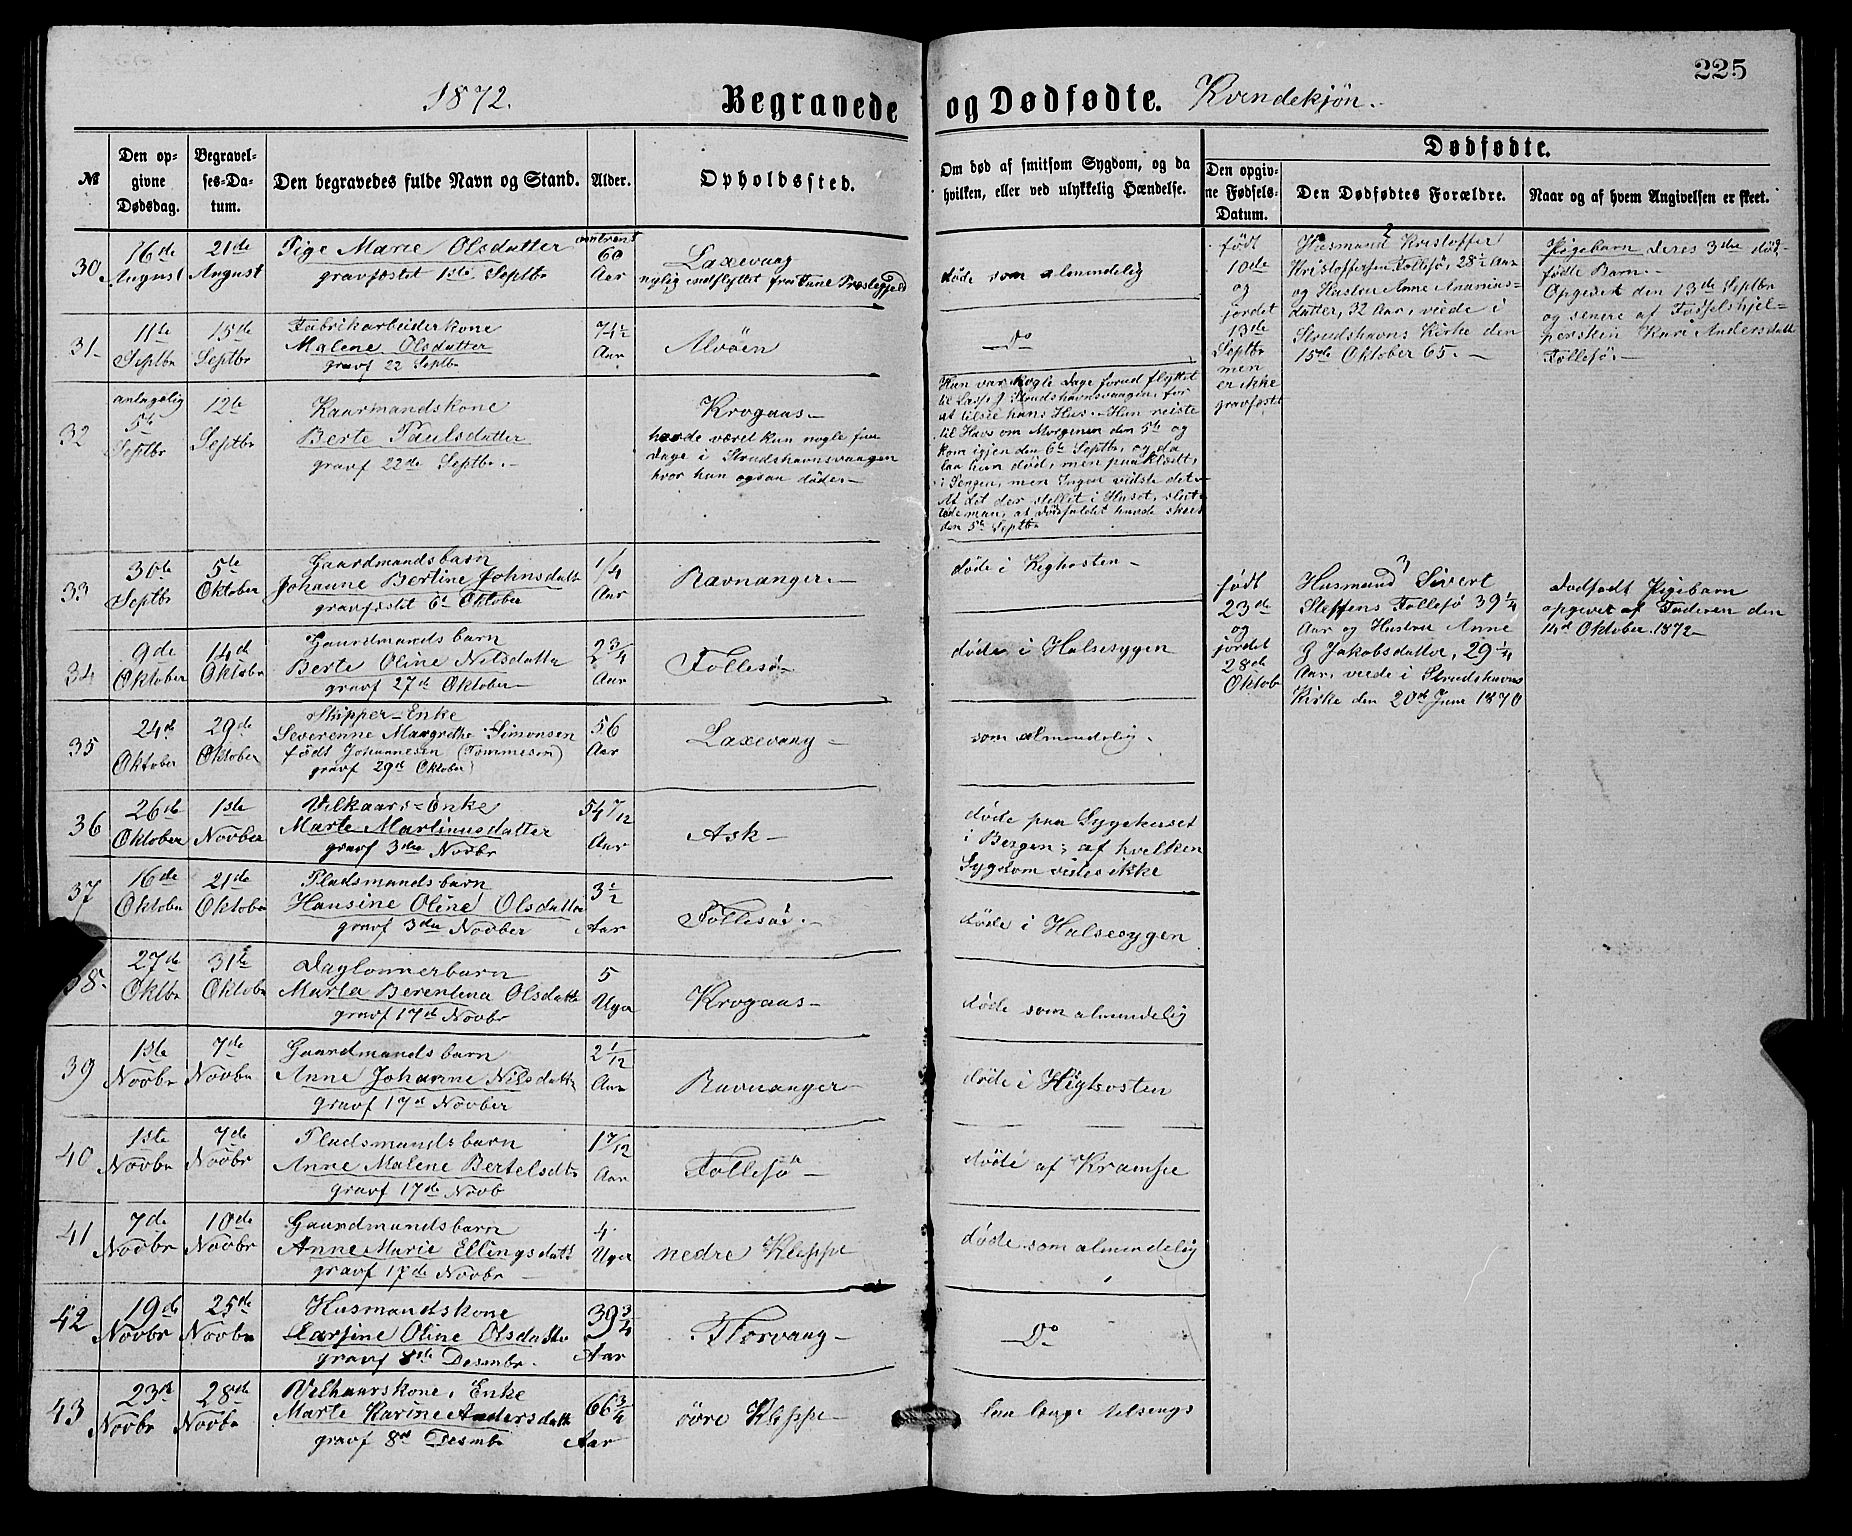 225
1872.
Begravede og Dødfødte. Kvindekjøn.
№
Den opgivne Dødsdag.
Begravelses-Datum.
Den begravedes fulde Navn og Stand.
Alder.
Opholdssted.
Om død af smitsom Sygdom, og da hvilken, eller ved ulykkelig Hændelse.
Dødfødte.
Den opgivne Fødsels-Datum.
Den Dødfødtes Forældre.
Naar og af hvem Angivelsen er skeet.
30
16de August
21de August
Pige Marie Olsdatter
gravfæstet 1ste Septbr
omtrent 60 Aar
Laxevaag
nylig indflyttet fra Fane Præstegjeld
døde som almindelig
31
11te Septbr
15de Septbr
Fabrikarbeiderkone
Malene Olsdatter
gravf 22 Septbr
74½ Aar
Alvøen
Do
32
antagelig 5te Septbr
12te Septbr
Kaarmandskone
Berte Paulsdatter
gravf 22de Septbr.
Krogaas
havde været kun nogle faa
Dage i Strudshavnsvaagen
hvor hun ogsaa døde
Hun var nogle Dage forud flyttet
til Lasse i Strudshavnsvaagen, for
at tilsee hans Hus. Han reiste
til Havs om Morgenen den 5te og
kom igjen den 6te Septbr, og da
laa hun død, men paaklædt,
i Sengen, men Ingen vidste det
Af det der stellet i Huset, slut
tede man, at Dødsfaldet havde skeet
den 5te Septbr
33
30de Septbr
5te Oktober
Gaardmandsbarn
Johanne Bertine Johnsdatt
gravfæstet 6te Oktober
1/4 Aar
Ravnanger
døde i Kighosten
34
9de Oktober
14d Oktobr
Gaardmandsbarn
Berte Oline Nilsdatter
gravf 27de Oktober
2¾ Aar
Follesø
døde i Halsesygen
35
24de Oktober
29de Oktober
Skipper-Enke
Severenne Margrethe Simonsen
født Johannesen (Tommesen)
gravf 29de Oktober
56 Aar
Laxevaag
som almindelig.
36
26de Oktober
1ste Novber
Vilkaars-Enke
Marte Martinusdatter
gravf 3die Novbr
54 7/12 Aar
Ask
døde paa Sygehuset
i Bergen; af hvilken
Sygdom vides ikke
37
16de Oktobr
21de Oktobr
Pladsmandsbarn
Hansine Oline Olsdatter
gravf 3die Novber
3½ Aar
Follesø
døde i Halsesygen
38
27de Oktbr
31te Oktobr
Daglønnerbarn
Marta Berentina Olsdatt
gravf 17de Novbr
5 Uger
Krogaas
døde som almindelig
39
1ste Novbr
7de Novbr
Gaardmandsbarn
Anne Johanne Nilsdatt
gravf 17d Novber
2 1/12 Aar
Ravnanger
døde i Kighosten
40
1ste Novbr
7de Novbr
Pladsmandsbarn
Anne Malene Bertelsdtr
gravf 17de Novb
1 7/12 Aar
Follesø
døde af Krampe
41
7de Novbr
10de Novbr
Gaardmandsbarn
Anne Marie Ellingsdatt
gravf 17de Novbr
4 Uger
nedre Kleppe
døde som almindelig
42
19de Novbr
25de Novbr
Husmandskone
Larsine Oline Olsdatter
gravf 8de Desmbr.
39¾ Aar
Florvaag
Do
43
23de Novbr
28de Novbr
Vilkaarskone, Enke
Marte Karine Andersdatt
gravf 8de Desmbr
66¾ Aar
øvre Kleppe
laa længe tilsengs
født
10de
og
jordet
13de
Septbr
men
er ikke
gravfæstet
2
Husmand Kristoffer
Kristoffersen Follesø, 28½ Aar
og Hustru Anne Ananias-
datter, 32 Aar, viede i
Strudshavns Kirke den
15de Oktober 65.
Pigebarn deres 3die død-
fødte Barn.
Opgivet den 13de Septbr
og senere af Fødselshjel-
persken Kari Andersdatt
Follesø.
født
23de
og
jordet
28de
Oktob
3
Husmand Sivert
Steffens Follesø 39¼
Aar og Hustru Anne
G Jakobsdatter, 29¼
Aar, viede i Strudshavns
Kirke den 20de Juni 1870
Dødfødt Pigebarn
opgivet af Faderen den
14de Oktober 1872